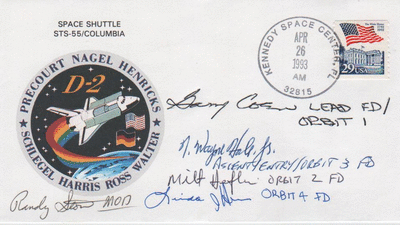 SPACE SHUTTLE
STS-55/COLUMBIA
PRECOURT NAGEL HENRICKS
D-2
SCHLEGEL HARRIS ROSS WALTER
KENNEDY SPACE CENTER, FL
APR
26
1993
AM
32815
29 USA
LEAD FD/
ORBIT 1
N. Wayne Hale, Jr.
ASCENT/ENTRY/ORBIT 3 FD
Milt Heflin ORBIT 2 FD
Linda ORBIT 4 FD
Randy Stone MOD